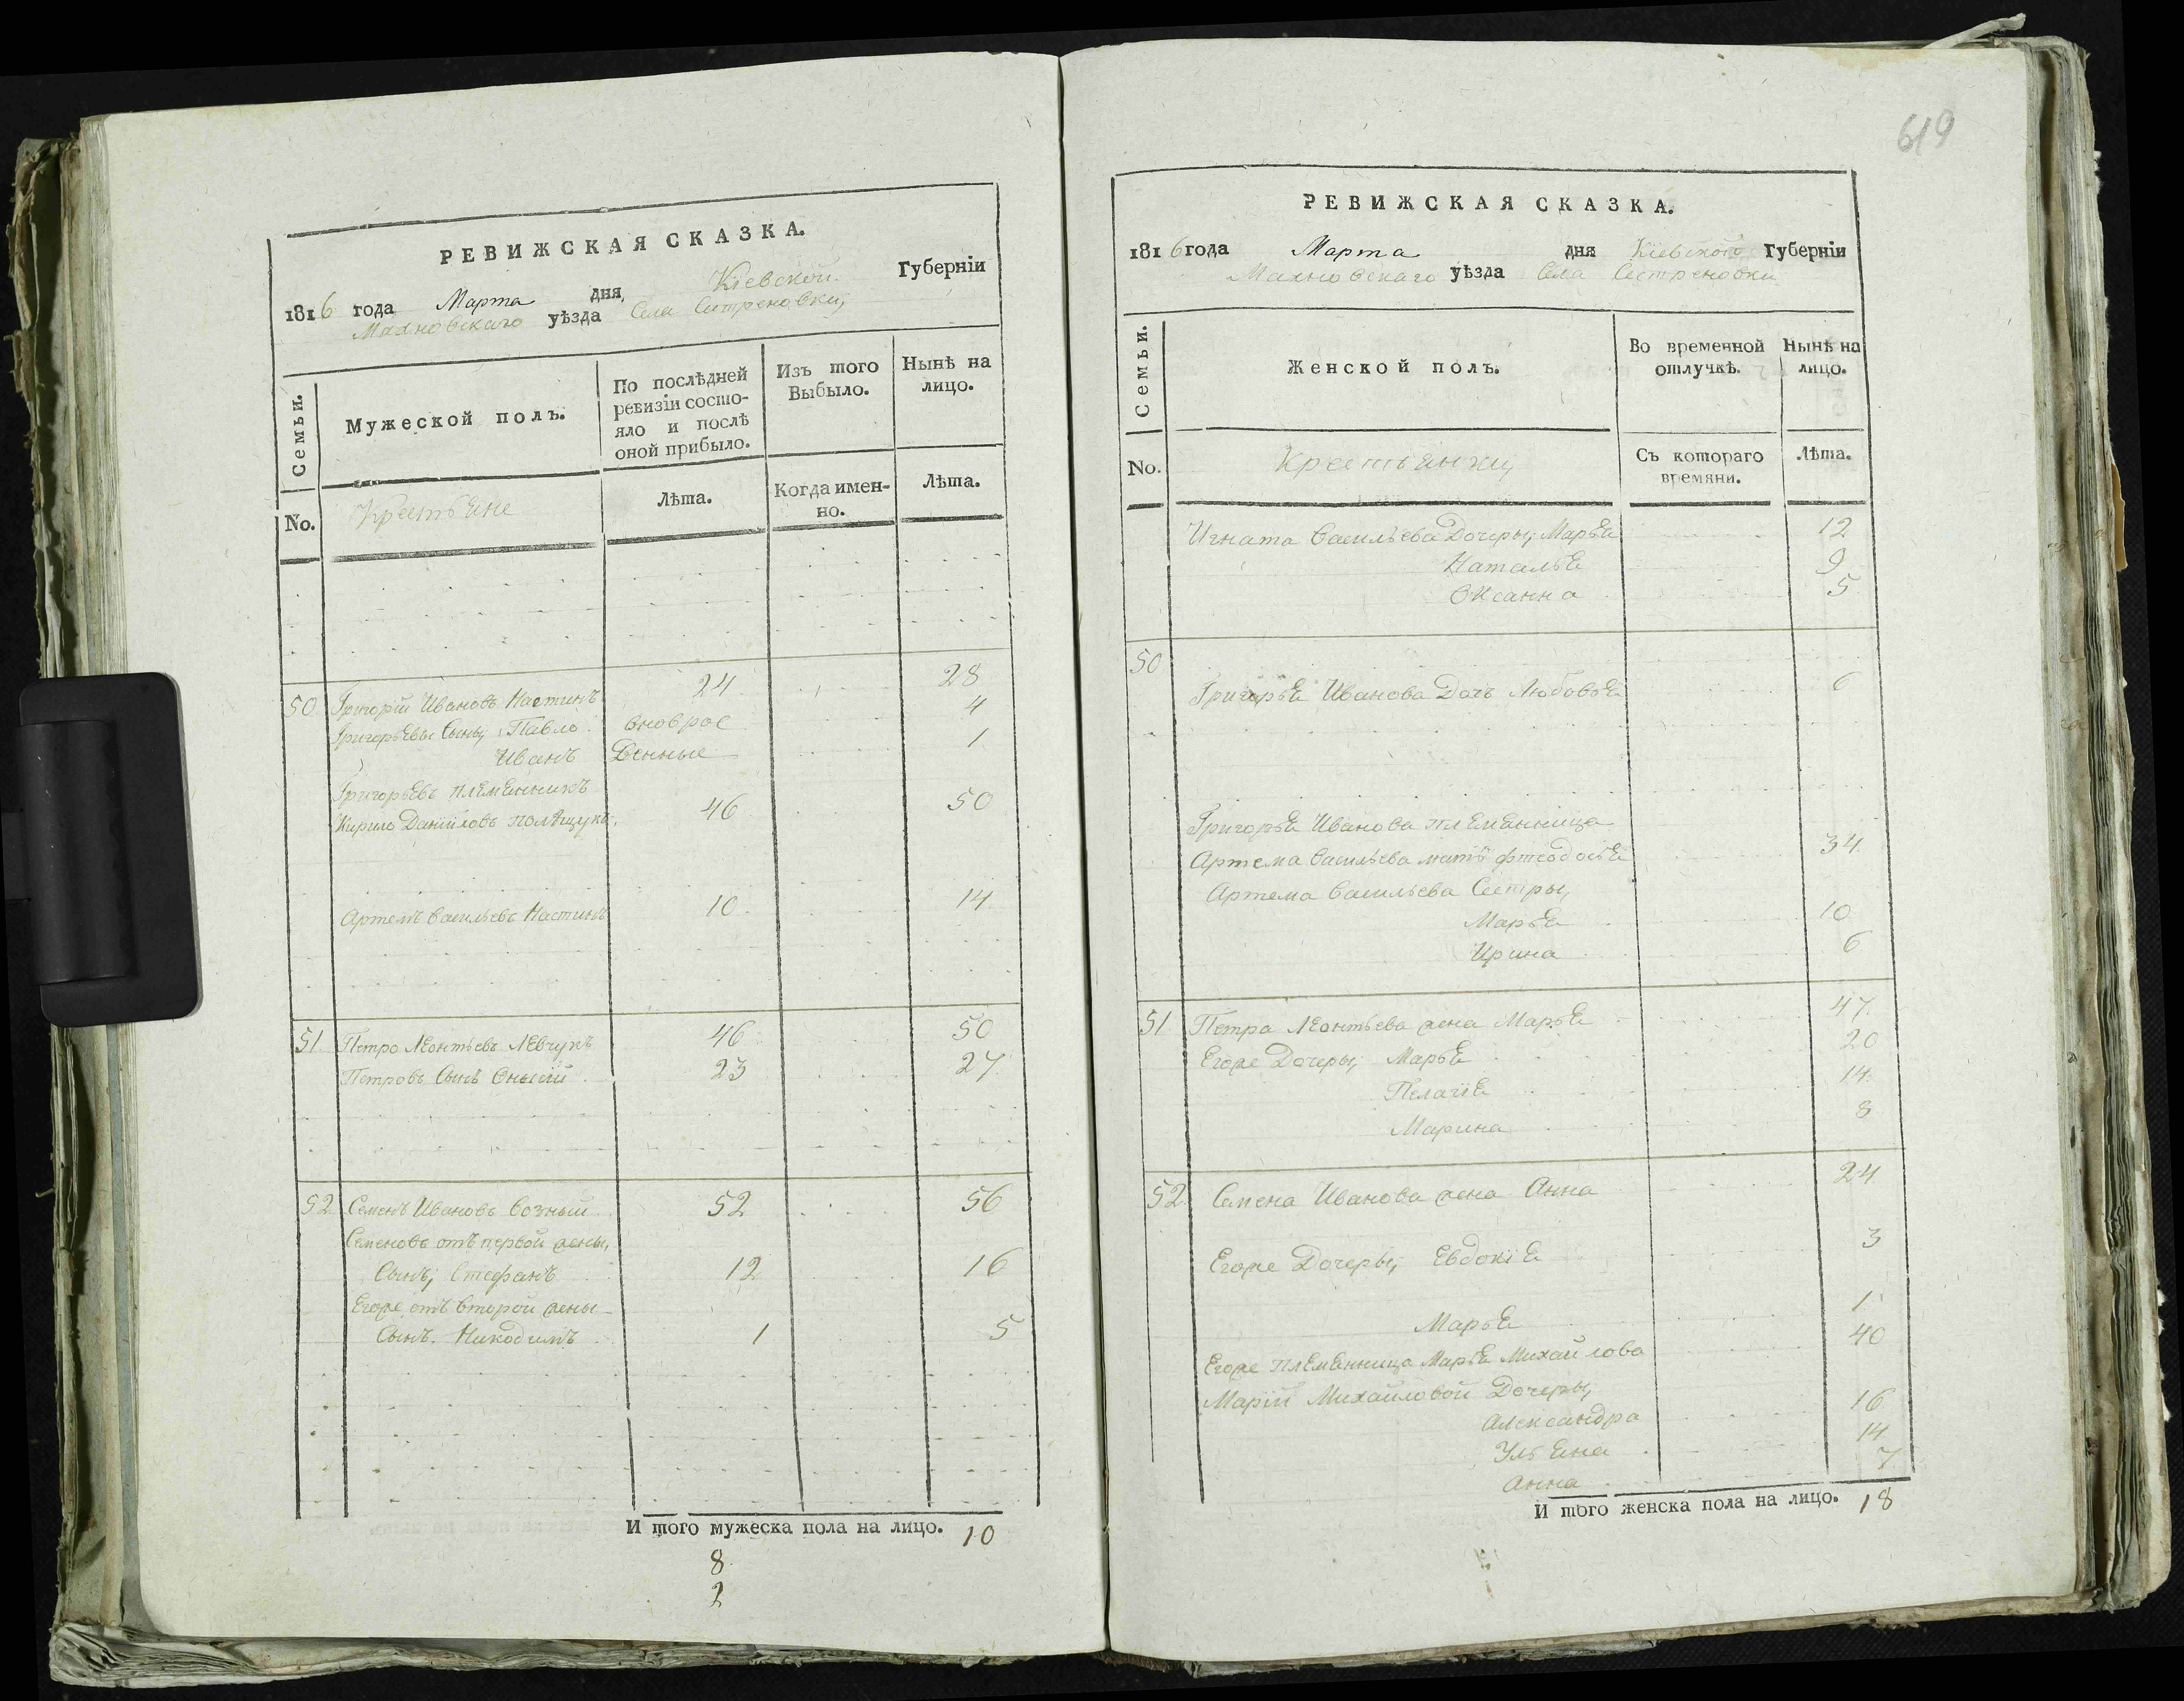 РЕВИЖСКАЯ СКАЗКА.
1816 года Марта дня Кіевской Губерніи
Махновскаго уѣзда Села Сестреновки
Семьи.
Мужеской полъ.
По послѣдней ревизіи состо-
яло и послѣ
оной прибыло.
Изъ того
Выбыло.
Нынѣ на
лицо.
No.
Крестьяне
Лѣта.
Когда имен-
но.
Лѣта.
50 Григорій Ивановъ Настинъ 24 28
Григорьевы Сыны, Павло вноврос 4
Иванъ денные 1
Григорьевъ племянникъ
Кирило Даниіловъ Полѣщукъ 46 50
Артемъ Васильевъ Настинъ 10 14
51 Петро Леонтьевъ Левчукъ 46 50
Петровъ Сынъ Онисій 23 27
52 Семенъ Ивановъ Возный 52 56
Семеновъ отъ первой жены,
Сынъ, Стефанъ 12 16
Егоже отъ второй жены
Сынъ. Никодимъ 1 5
И того мужеска пола на лицо. 10
8
2
619
РЕВИЖСКАЯ СКАЗКА.
1816 года Марта дня Кіевской Губерніи
Махновскаго уѣзда Села Сестреновки
Семьи.
Женской полъ.
Во временной
отлучкѣ.
Нынѣ на
лицо.
No.
Крестьянки
Съ котораго
времяни.
Лѣта.
Игната Васильева Дочеры, Марья 12
Наталья 9
Оксанна 5
50
Григорья Иванова Дочь Любовья 6
Григорья Иванова племянница
Артема Васильева мать Фтеодосья 34
Артема Васильева Сестры,
Марья 10
Ирина 6
51 Петра Леонтьева жена Марья 47
Егоже Дочеры, Марья 20
Пелагія 14
Марина 8
52 Семена Иванова жена Анна 24
Егоже Дочеры, Евдокія 3
Марья 1
Егоже племянница Марья Михайлова 40
Марій Михайловой Дочеры,
Александра 16
Ульяна 14
Анна 7
И того женска пола на лицо. 18